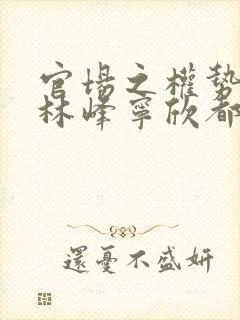 官場之權勢
林峰寧欣都
還憂不盛妍